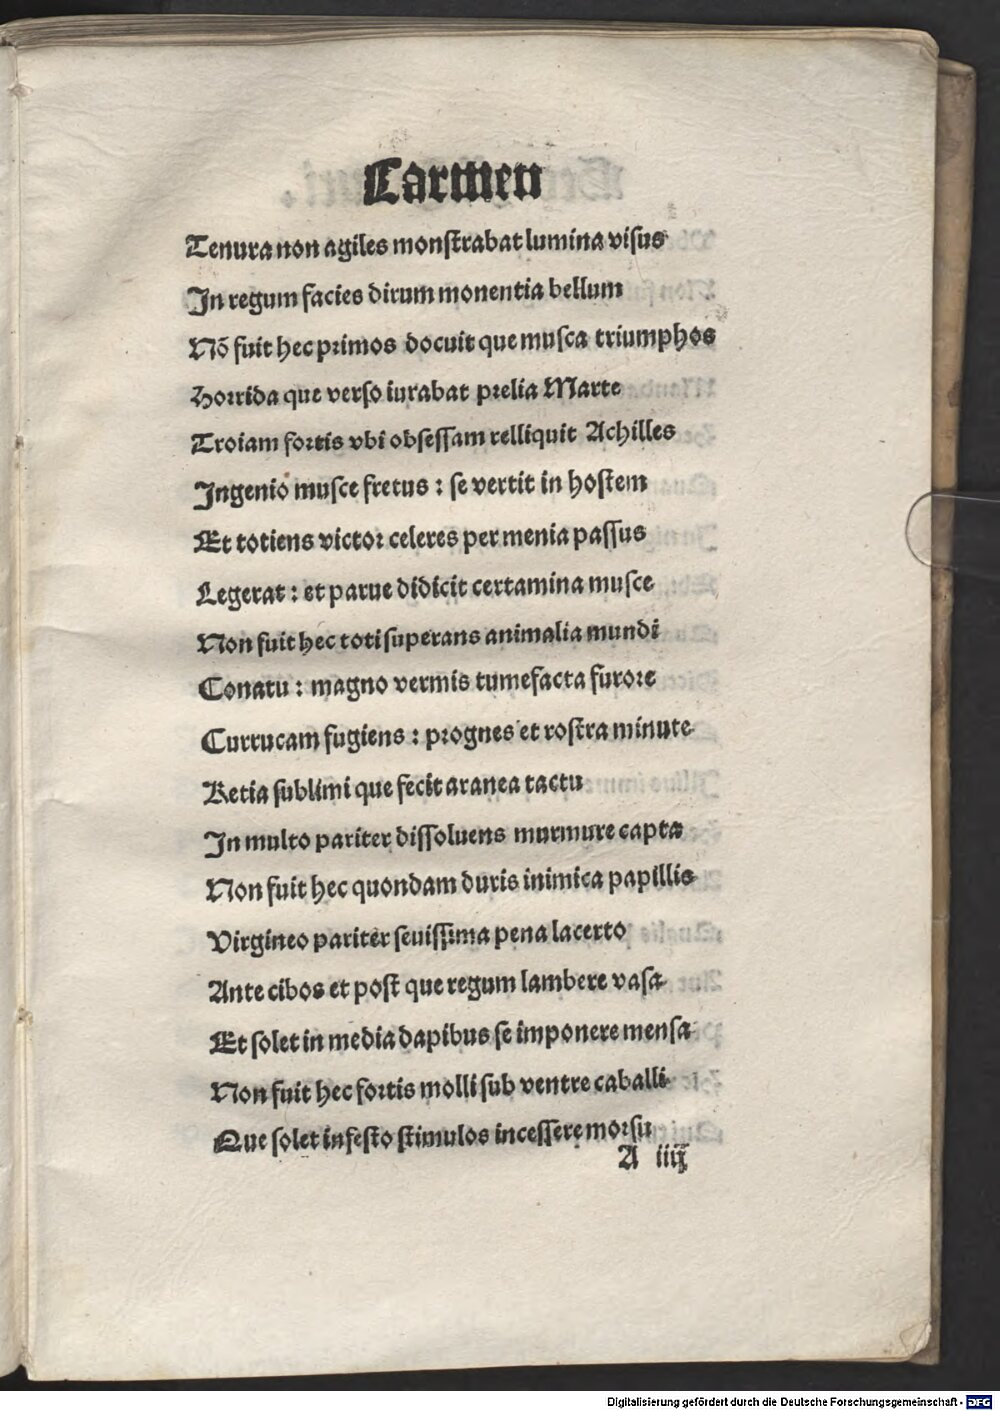 Carmen
Tenura non agiles monstrabat lumina visus
In regum facies dirum monentia bellum
Nō fuit hec primos docuit que musca triumphos
Horrida que verso iurabat prelia Marte
Troiam fortis vbi obsessam relliquit Achilles
Ingenio musce fretus : se vertit in hostem
Et totiens victor celeres per menia passus
Legerat : et parue didicit certamina musce
Non fuit hec toti superans animalia mundi
Conatu : magno vermis tumefacta furore
Currucam fugiens : prognes et rostra minute
Retia sublimi que fecit aranea tactu
In multo pariter dissoluens murmure capta
Non fuit hec quondam duris inimica papillis
Virgineo pariter seuissima pena lacerto
Ante cibos et post que regum lambere vasa
Et solet in media dapibus se imponere mensa
Non fuit hec fortis molli sub ventre caballi
Que solet infesto stimulos incessere morsu
A iiij
Digitalisierung gefördert durch die Deutsche Forschungsgemeinschaft - DFG